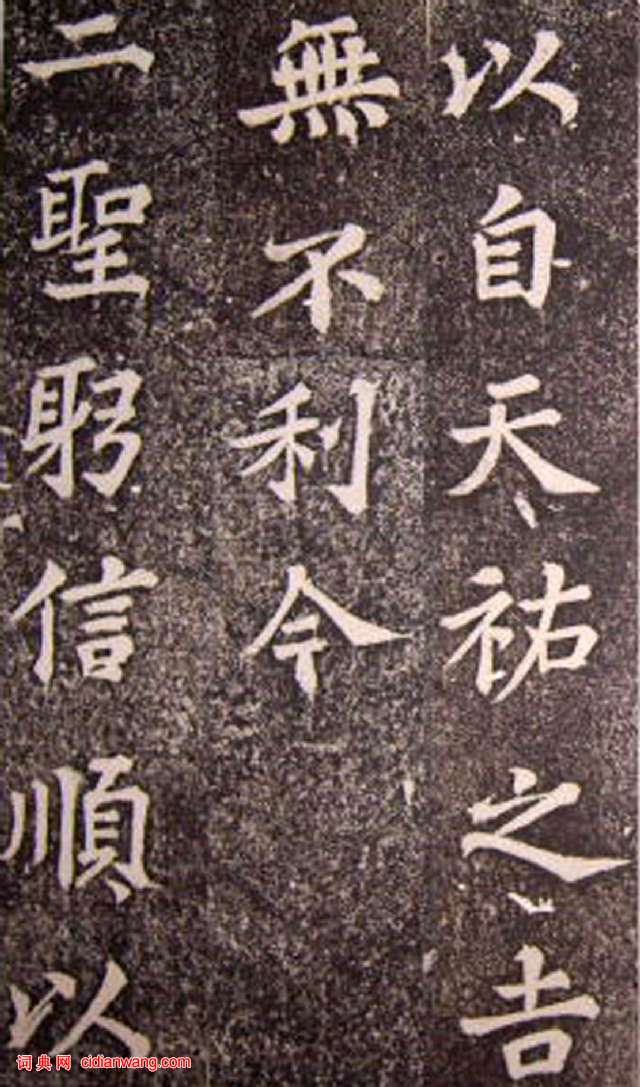 以自天祐之吉
無不利今
二聖躬信順以
词典网 cidianwang.com